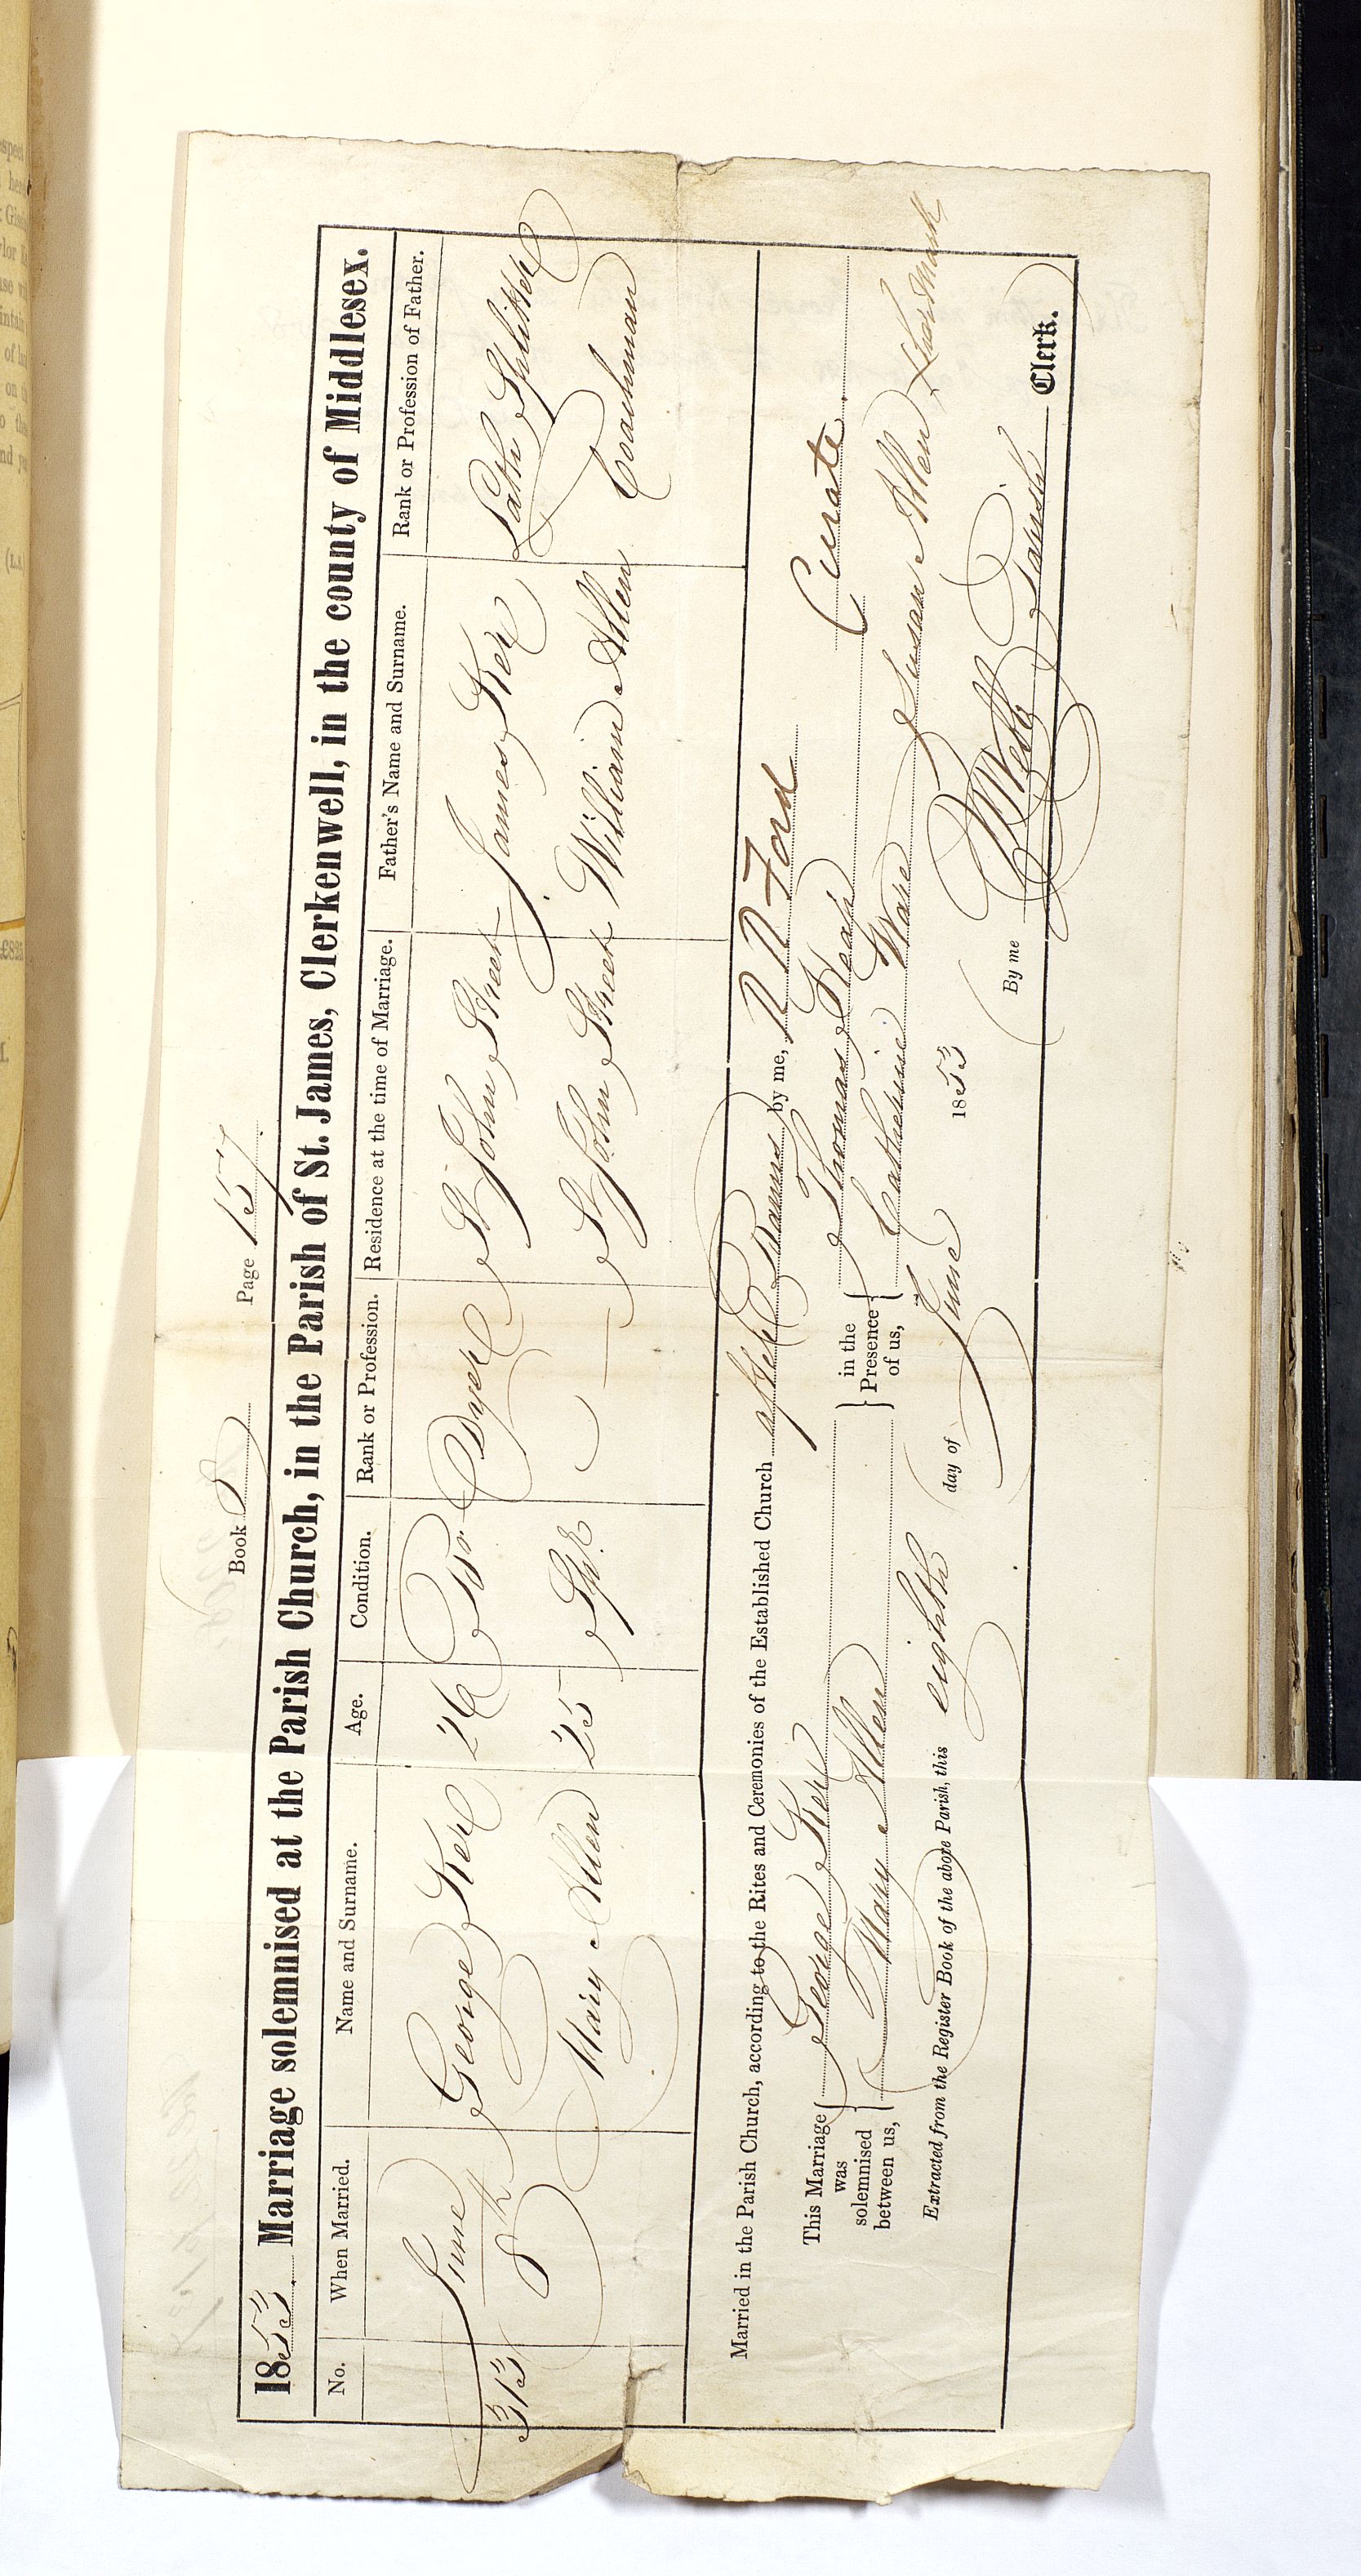 Book 8 Page 157
1853. Marriage solemnised at the Parish Church, in the Parish of St. James, Clerkenwell, in the county of Middlesex.
No. When Married. Name and Surname. Age. Condition. Rank or Profession. Residence at the time of Marriage. Father's Name and Surname. Rank or Profession of Father.
313 June 8th George Ker 26 Br Dyer St John Street James Ker Lath Splitter
Mary Allen 25 Spr. — St John Street William Allen Coachman
Married in the Parish Church, according to the Rites and Ceremonies of the Established Church after Banns by me, R R Ford Curate.
This Marriage was solemnised between us, George Ker in the Presence of us, Thomas
Mary Allen Catherine Ware Susan Allen X her Mark
Extracted from the Register Book of the above Parish, this eighth day of June 1853
By me Webb Parish Clerk.